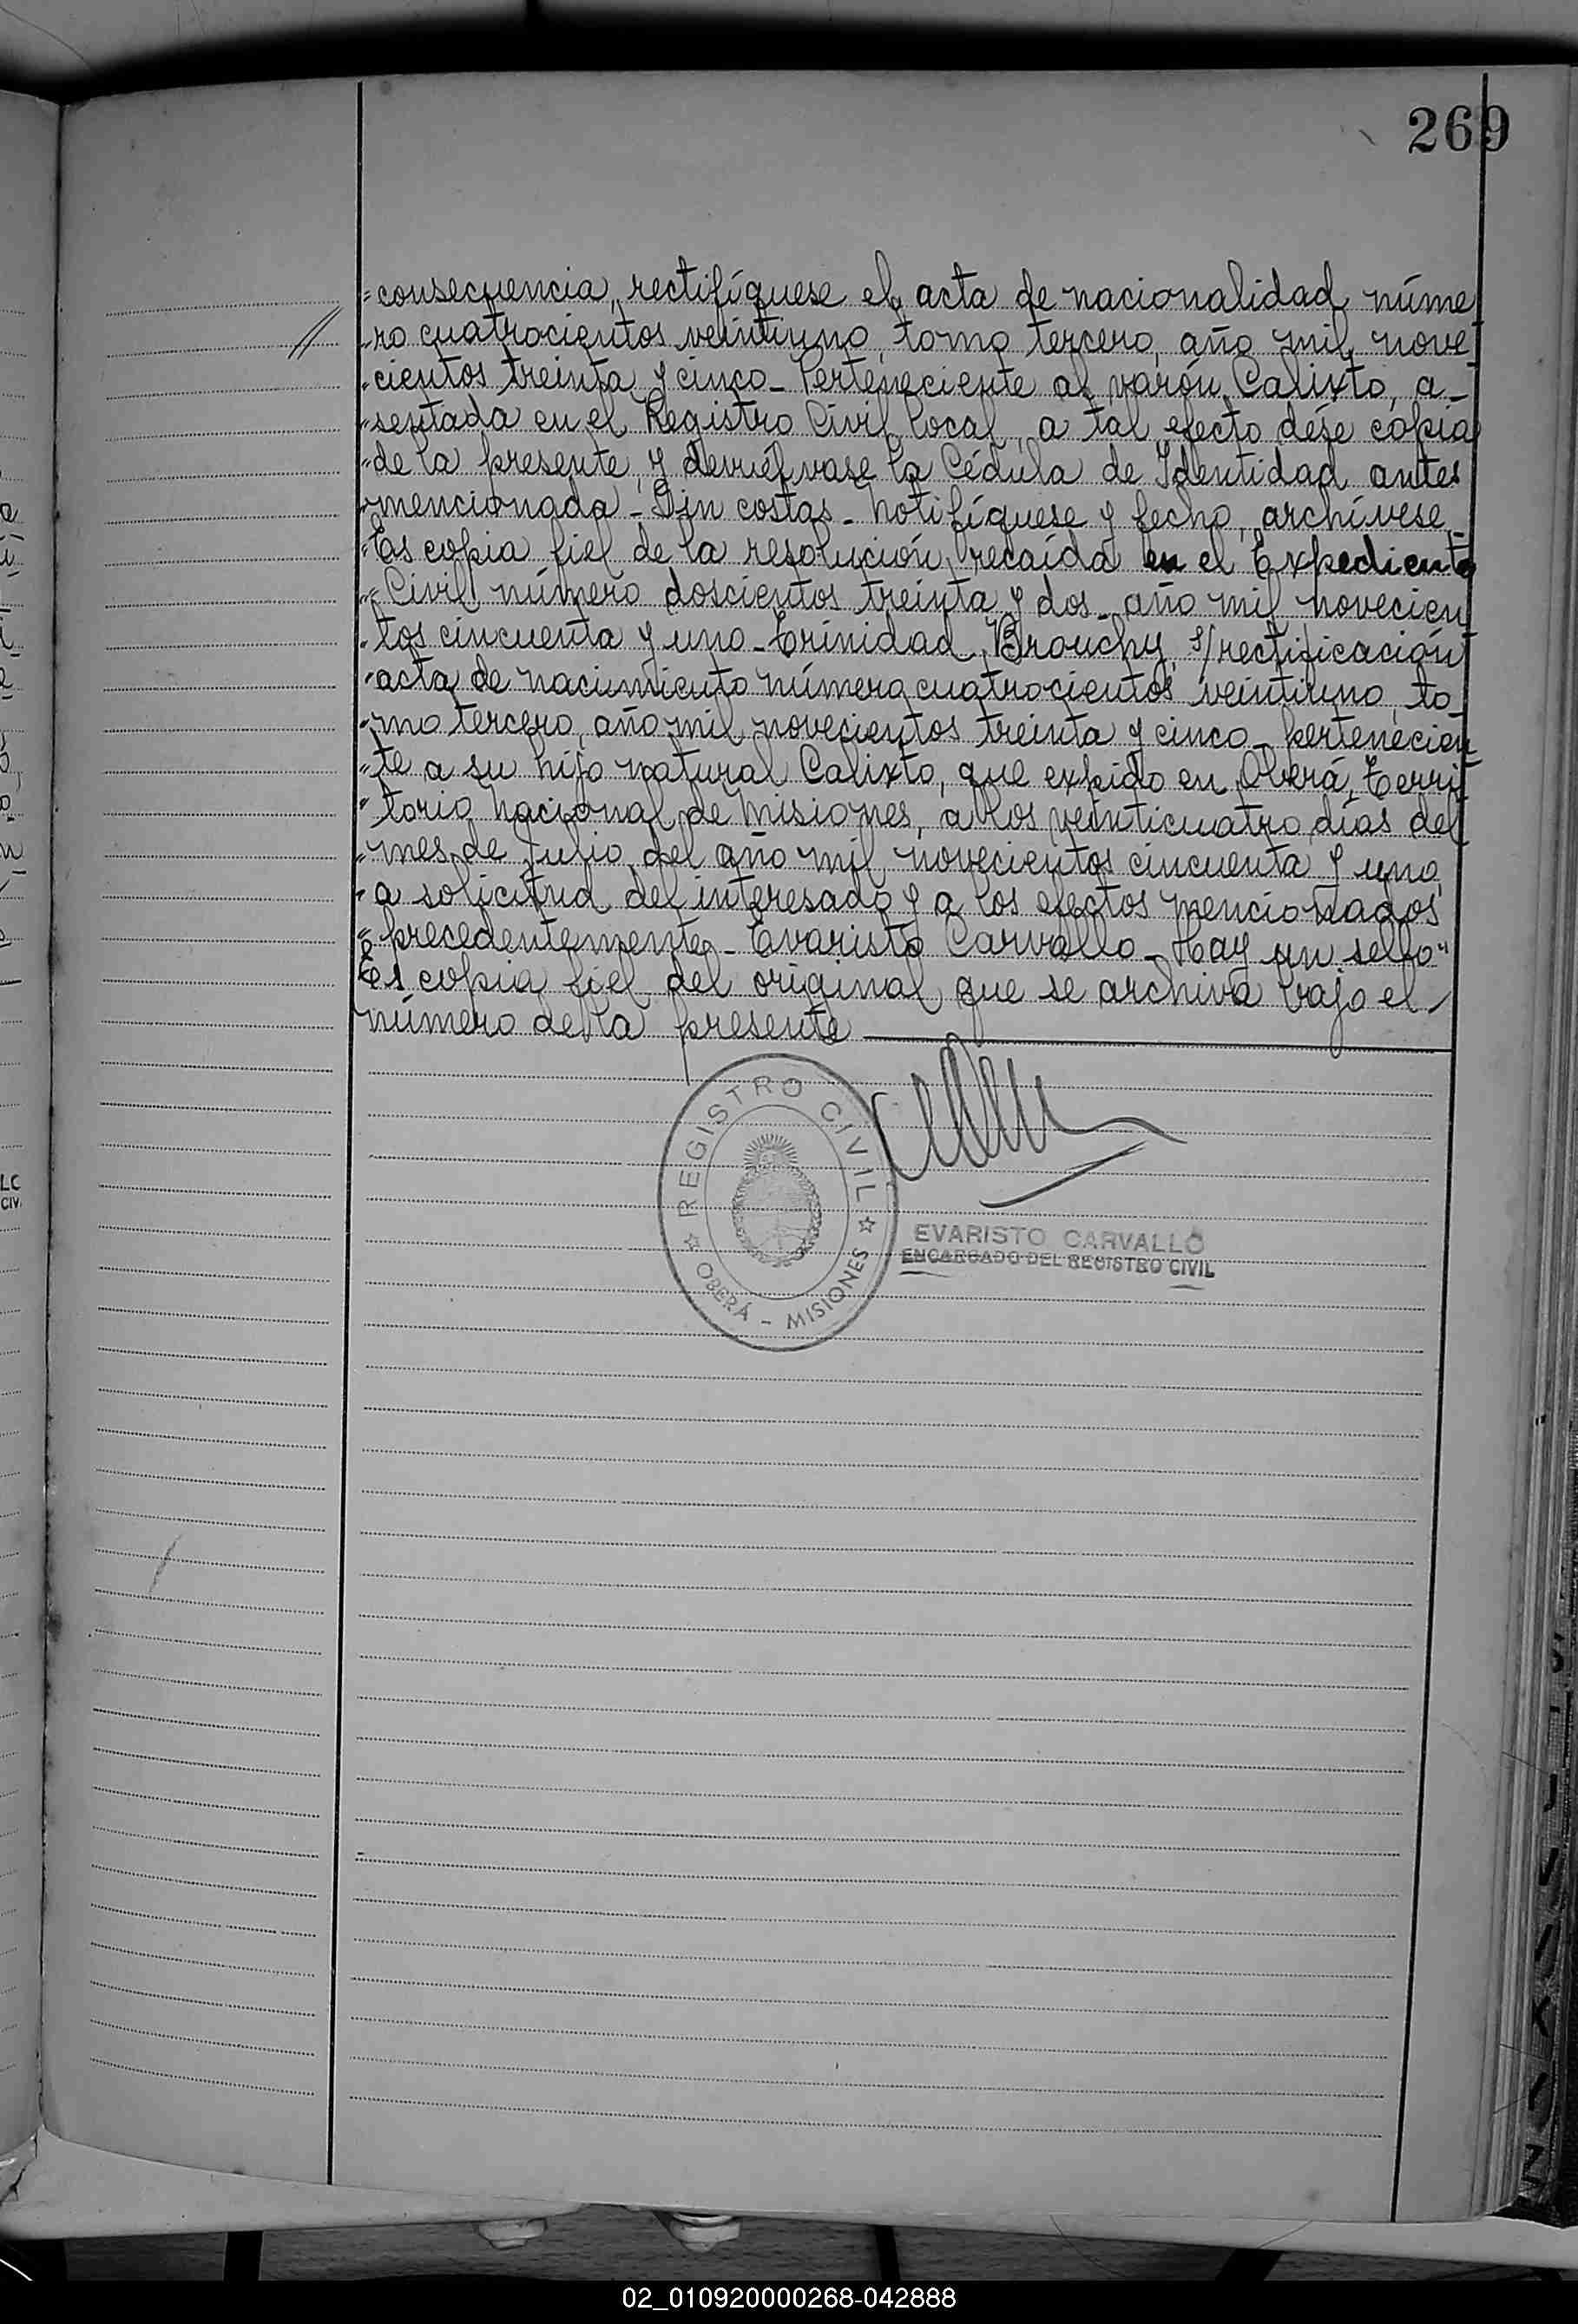 269
"consecuencia, rectifíquese el acta de nacionalidad núme
"ro cuatrocientos veintiuno, tomo tercero, año mil nove
"cientos treinta y cinco_ Perteneciente al varón Calixto, a_
"sentada en el Registro Civil local, a tal efecto dése copia
"de la presente, y devuélvase la Cédula de Identidad antes
"mencionada_ Sin costas_ Notifíquese y fecho, archívese_
"Es copia fiel de la resolución recaída en el Expediente
"Civil número doscientos treinta y dos_ año mil novecien
"tos cincuenta y uno_ Trinidad Brouchy, s/rectificación
"acta de nacimiento número cuatrocientos veintiuno, to_
"mo tercero, año mil novecientos treinta y cinco_ pertenecien
"te a su hijo natural Calixto, que expido en Oberá, Terri
"torio Nacional de Misiones, a los veinticuatro días del
"mes de Julio del año mil novecientos cincuenta y uno,
"a solicitud del interesado y a los efectos mencionados
"precedentemente_ Evaristo Carvallo_ Hay un sello"
Es copia fiel del original que se archiva bajo el
número de la presente
REGISTRO CIVIL
OBERÁ - MISIONES
EVARISTO CARVALLO
ENCARGADO DEL REGISTRO CIVIL
02_010920000268-042888